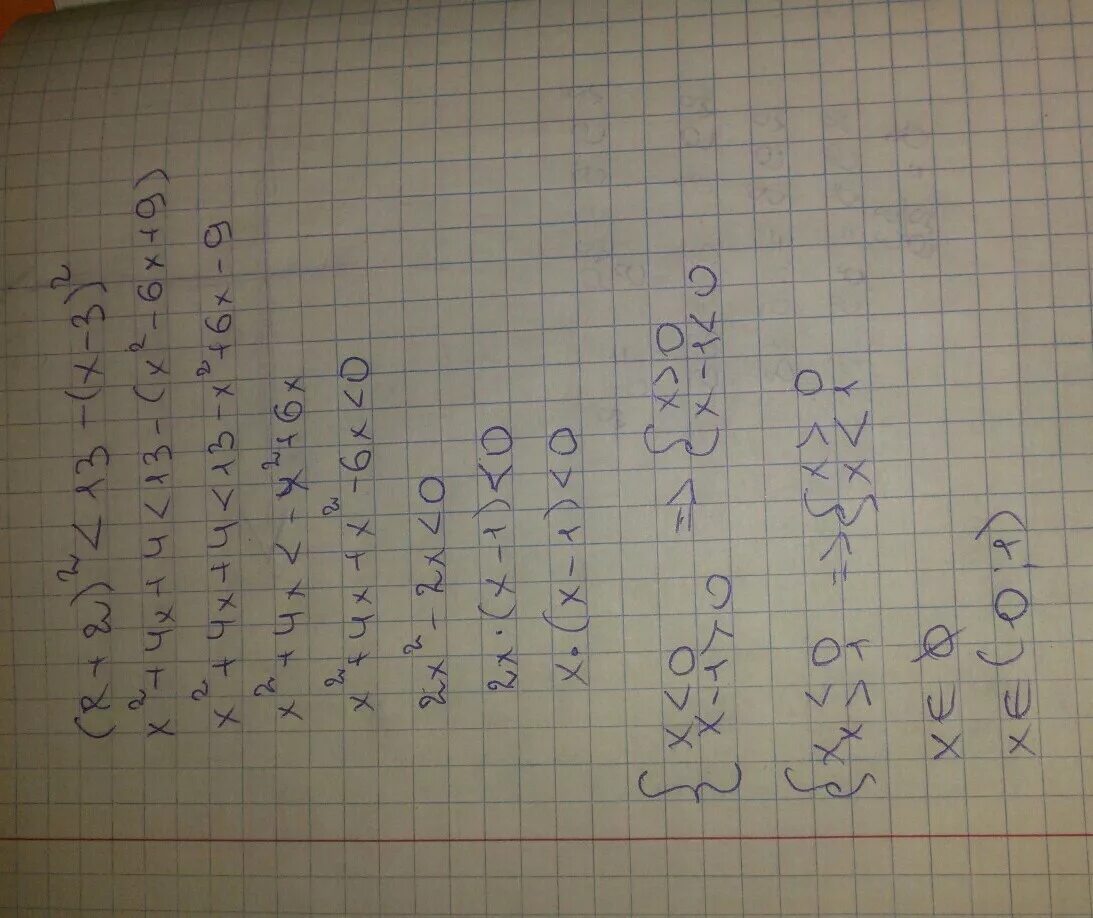 (x+2)² < 13 - (x-3)²
x² + 4x + 4 < 13 - (x² - 6x + 9)
x² + 4x + 4 < 13 - x² + 6x - 9
x² + 4x < - x² + 6x
x² + 4x + x² - 6x < 0
2x² - 2x < 0
2x·(x-1) < 0
x·(x-1) < 0
{ x < 0 => { x > 0
x - 1 > 0 x - 1 < 0
{ x < 0 => { x > 0
x > 1 x < 1
x ∈ ∅
x ∈ (0;1)